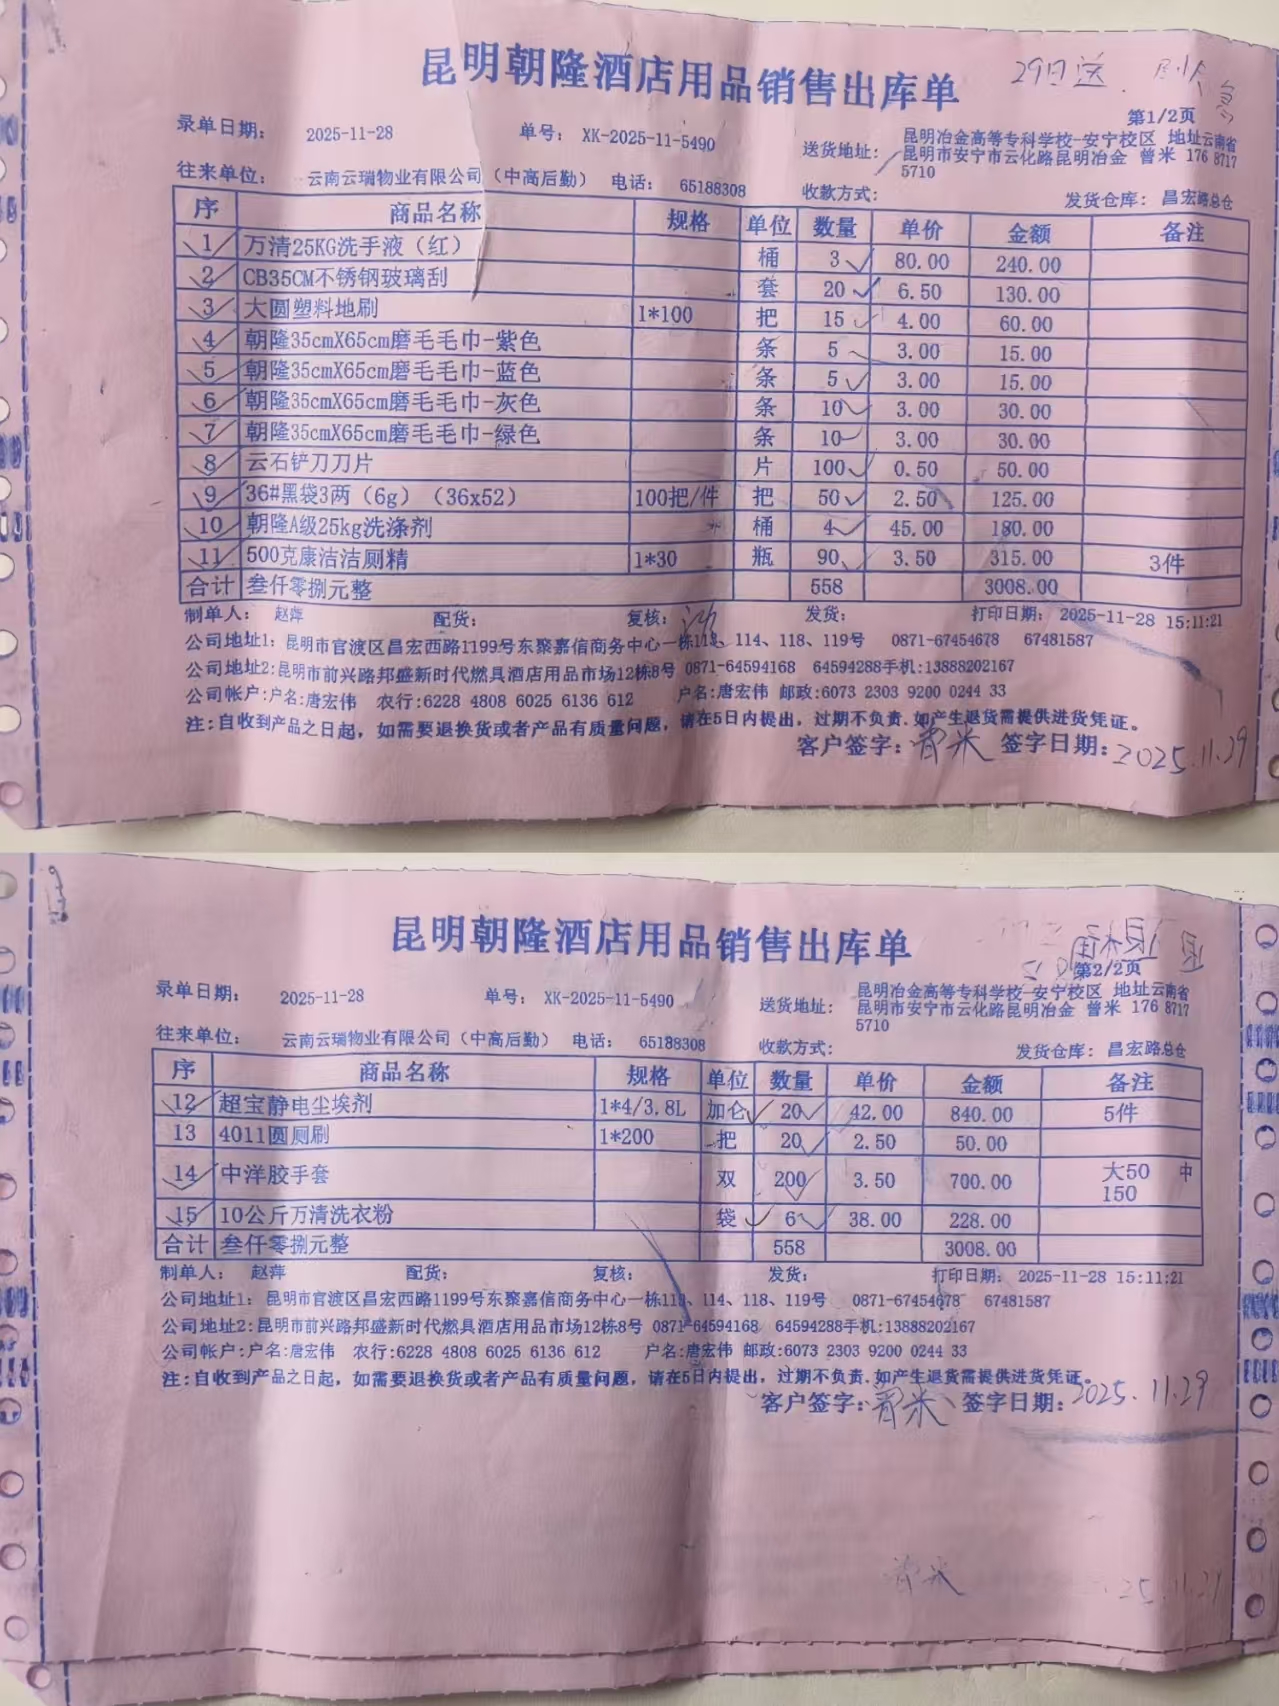 昆明朝隆酒店用品销售出库单
29日送
第1/2页
录单日期: 2025-11-28 单号: XK-2025-11-5490 送货地址: 昆明冶金高等专科学校-安宁校区 地址云南省
昆明市安宁市云化路昆明冶金 曾米 176 8717
5710
往来单位: 云南云瑞物业有限公司(中高后勤) 电话: 65188308 收款方式: 发货仓库: 昌宏路总仓
序 商品名称 规格 单位 数量 单价 金额 备注
1 万清25KG洗手液(红) 桶 3 80.00 240.00
2 CB35CM不锈钢玻璃刮 套 20 6.50 130.00
3 大圆塑料地刷 1*100 把 15 4.00 60.00
4 朝隆35cmX65cm磨毛毛巾-紫色 条 5 3.00 15.00
5 朝隆35cmX65cm磨毛毛巾-蓝色 条 5 3.00 15.00
6 朝隆35cmX65cm磨毛毛巾-灰色 条 10 3.00 30.00
7 朝隆35cmX65cm磨毛毛巾-绿色 条 10 3.00 30.00
8 云石铲刀刀片 片 100 0.50 50.00
9 36#黑袋3两(6g)(36x52) 100把/件 把 50 2.50 125.00
10 朝隆A级25kg洗涤剂 桶 4 45.00 180.00
11 500克康洁洁厕精 1*30 瓶 90 3.50 315.00 3件
合计 叁仟零捌元整 558 3008.00
制单人: 赵萍 配货: 复核: 发货: 打印日期: 2025-11-28 15:11:21
公司地址1: 昆明市官渡区昌宏西路1199号东聚嘉信商务中心一栋113、114、118、119号 0871-67454678 67481587
公司地址2:昆明市前兴路邦盛新时代燃具酒店用品市场12栋8号 0871-64594168 64594288手机:13888202167
公司帐户:户名:唐宏伟 农行:6228 4808 6025 6136 612 户名:唐宏伟 邮政:6073 2303 9200 0244 33
注:自收到产品之日起，如需要退换货或者产品有质量问题，请在5日内提出，过期不负责.如产生退货需提供进货凭证。
客户签字: 曾米 签字日期: 2025.11.29
昆明朝隆酒店用品销售出库单
第2/2页
录单日期: 2025-11-28 单号: XK-2025-11-5490 送货地址: 昆明冶金高等专科学校-安宁校区 地址云南省
昆明市安宁市云化路昆明冶金 曾米 176 8717
5710
往来单位: 云南云瑞物业有限公司(中高后勤) 电话: 65188308 收款方式: 发货仓库: 昌宏路总仓
序 商品名称 规格 单位 数量 单价 金额 备注
12 超宝静电尘埃剂 1*4/3.8L 加仑 20 42.00 840.00 5件
13 4011圆厕刷 1*200 把 20 2.50 50.00
14 中洋胶手套 双 200 3.50 700.00 大50 中
150
15 10公斤万清洗衣粉 袋 6 38.00 228.00
合计 叁仟零捌元整 558 3008.00
制单人: 赵萍 配货: 复核: 发货: 打印日期: 2025-11-28 15:11:21
公司地址1: 昆明市官渡区昌宏西路1199号东聚嘉信商务中心一栋113、114、118、119号 0871-67454678 67481587
公司地址2:昆明市前兴路邦盛新时代燃具酒店用品市场12栋8号 0871-64594168 64594288手机:13888202167
公司帐户:户名:唐宏伟 农行:6228 4808 6025 6136 612 户名:唐宏伟 邮政:6073 2303 9200 0244 33
注:自收到产品之日起，如需要退换货或者产品有质量问题，请在5日内提出，过期不负责.如产生退货需提供进货凭证。
客户签字: 曾米 签字日期: 2025.11.29
曾米 25.11.29